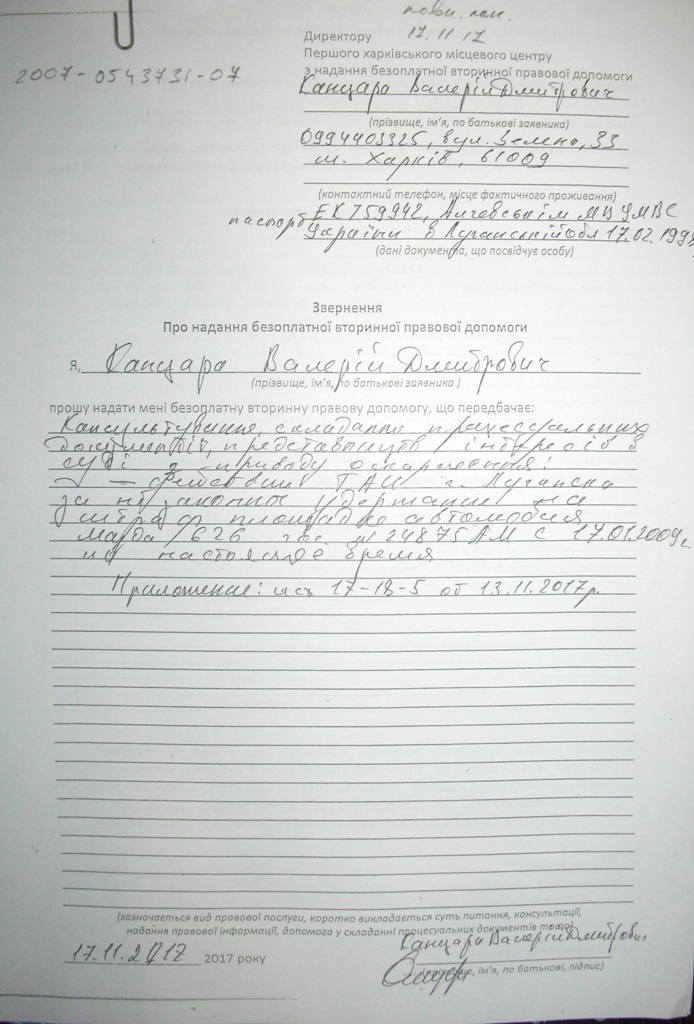 17.11.17
Директору
Першого харківського місцевого центру
2007-0543731-07
з надання безоплатної вторинної правової допомоги
Канцара Валерій Дмитрович
(прізвище, ім'я, по батькові заявника)
0994403325, вул. Зелена, 33
м. Харків, 61009
(контактний телефон, місце фактичного проживання)
паспорт ЕК759942, Алчевськім МВ УМВС
України в Луганській обл 17.02.1998
(дані документа, що посвідчує особу)
Звернення
Про надання безоплатної вторинної правової допомоги
я, Канцара Валерій Дмитрович
(прізвище, ім'я, по батькові заявника )
прошу надати мені безоплатну вторинну правову допомогу, що передбачає:
Консультування, складання процессуальних
документів, представництв інтересів в
суді з приводу оскарження:
— ГАИ г. Луганска
за незаконных удержание на
штраф площадке автомобиля
Мазда 626 24875АМ с 17.01.2009г
по настоящее время
Приложение: исх 17-18-5 от 13.11.2017р.
(зазначається вид правової послуги, коротко викладається суть питання, консультації,
надання правової інформації, допомога у складанні процесуальних документів тощо)
Канцара Валерій Дмитрович
17.11.2017 2017 року
(прізвище, ім'я, по батькові, підпис)